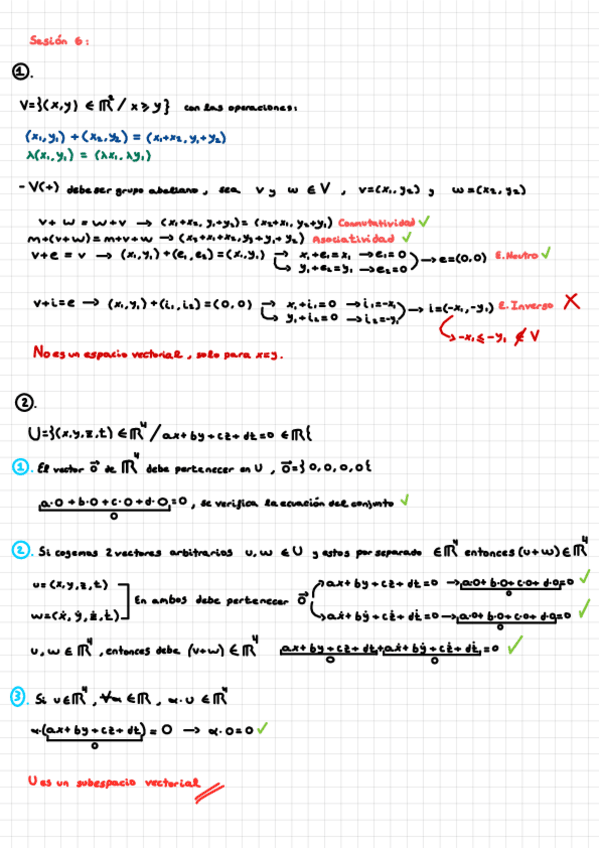 Sesión 6:
①.
V=}(x,y) ∈ ℝ² / x ≥ y} con las operaciones:
(x₁,y₁) + (x₂,y₂) = (x₁+x₂, y₁+y₂)
λ(x₁,y₁) = (λx₁, λy₁)
- V(+) debe ser grupo abeliano, sea v y w ∈ V, v=(x₁,y₂) y w=(x₂,y₂)
v+ w = w+v → (x₁+x₂, y₁+y₂)= (x₂+x₁, y₂+y₁) Conmutatividad ✓
m+(v+w)=m+v+w → (x₃+x₁+x₂, y₃+y₁+y₂) Asociatividad ✓
v+e = v → (x₁,y₁)+(e₁,e₂)=(x₁,y₁) → x₁+e₁=x₁ → e₁=0 → e=(0,0) E.Neutro ✓
→ y₁+e₂=y₁ → e₂=0
v+i=e → (x₁,y₁)+(i₁,i₂)=(0,0) → x₁+i₁=0 → i₁=-x₁ → i=(-x₁,-y₁) E.Inverso ✗
→ y₁+i₂=0 → i₂=-y₁
→ -x₁ ≤ -y₁ ∉ V
No es un espacio vectorial, solo para x=y.
②.
U=}(x,y,z,t) ∈ ℝ⁴ / ax+by+cz+dt=0 ∈ ℝ{
① El vector 0⃗ de ℝ⁴ debe pertenecer en U, 0⃗=}0,0,0,0{
a·0+b·0+c·0+d·0=0, se verifica la ecuación del conjunto ✓
0
② Si cogemos 2 vectores arbitrarios u,w ∈ U y estos por separado ∈ℝ⁴ entonces (u+w)∈ℝ⁴
u= (x,y,z,t) → ax+by+cz+dt=0 → a·0+b·0+c·0+d·0=0 ✓
0
En ambos debe pertenecer 0⃗
w=(ẋ,ẏ,ż,ṫ) → aẋ+bẏ+cż+dṫ=0 → a·0+b·0+c·0+d·0=0 ✓
0
u,w ∈ ℝ⁴, entonces debe (v+w) ∈ ℝ⁴ ax+by+cz+dt+aẋ+bẏ+cż+dṫ=0 ✓
0 0
③ Si u∈ℝ⁴, ∀α ∈ℝ, α·u ∈ℝ⁴
α·(ax+by+cz+dt)= 0 → α·0=0 ✓
0
U es un subespacio vectorial